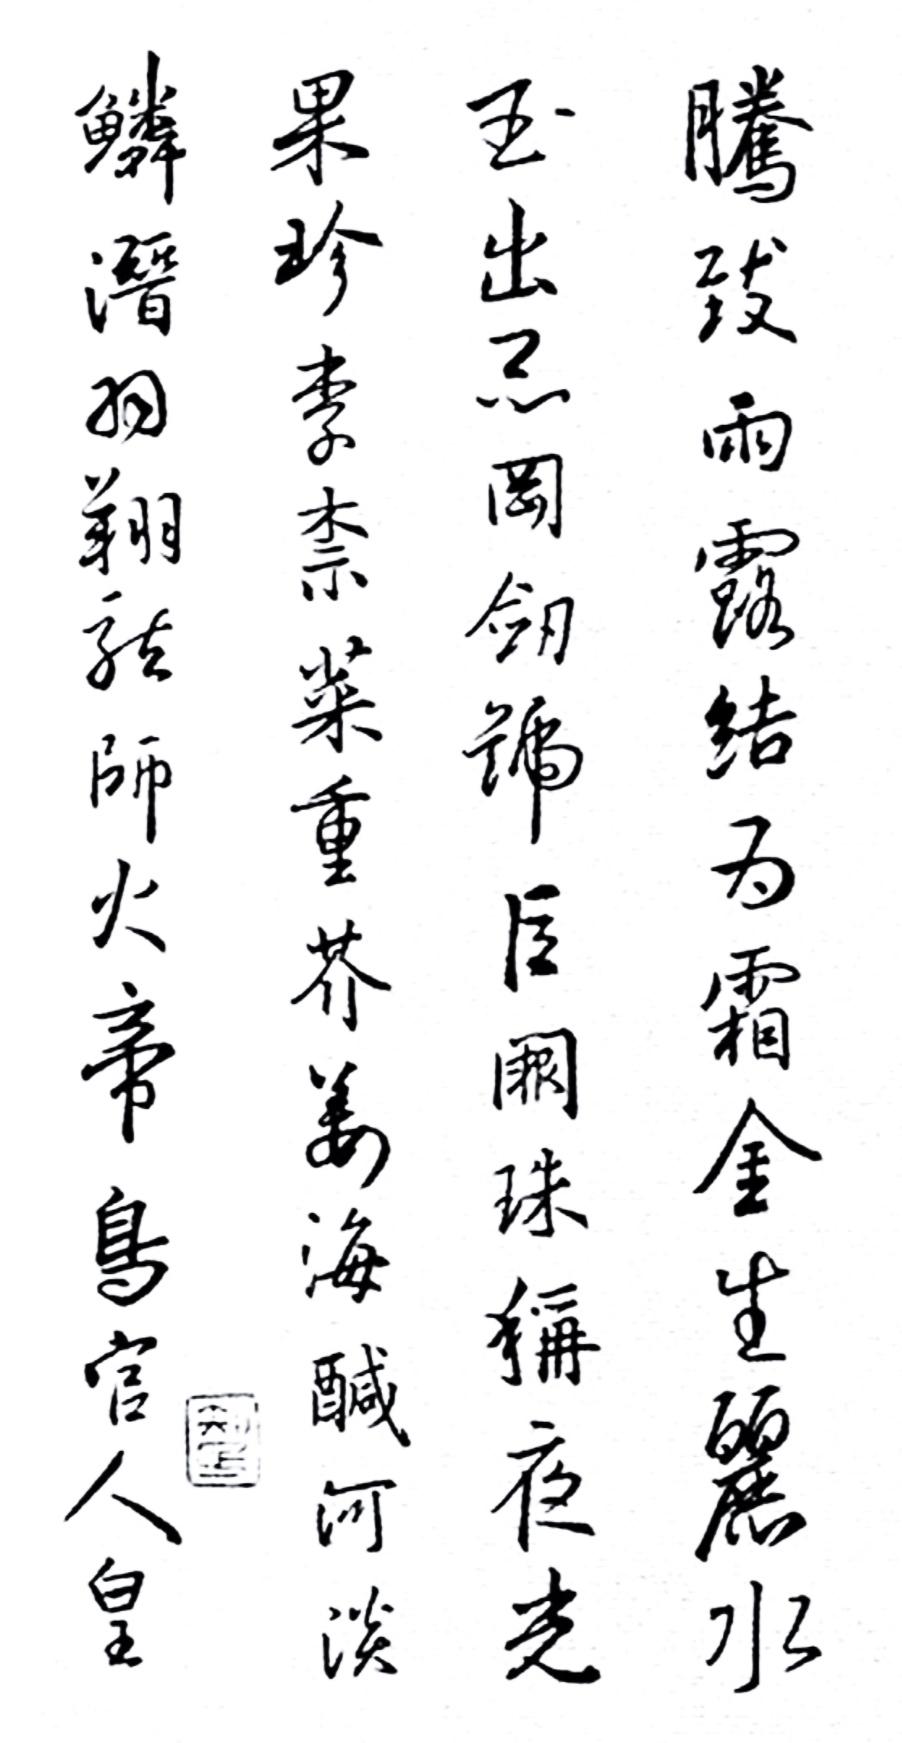 騰致雨露結為霜金生麗水
玉出崑岡劍號巨闕珠稱夜光
果珍李柰菜重芥姜海醎河淡
鱗潛羽翔龍師火帝鳥官人皇